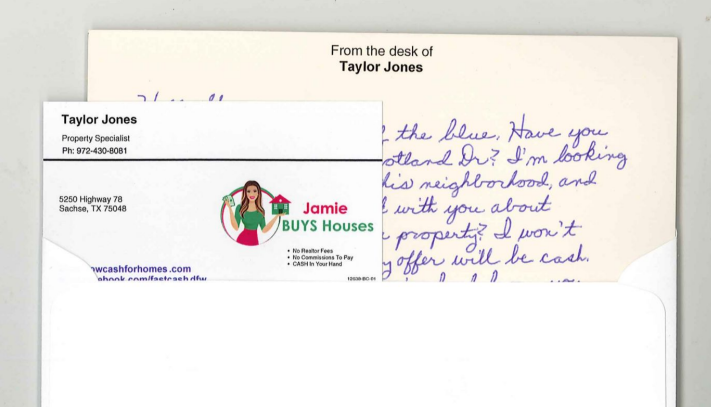 From the desk of
Taylor Jones
the blue. Have you
otland Dr? I'm looking
his neighborhood, and
with you about
property? I won't
offer will be cash.
Taylor Jones
Property Specialist
Ph: 972-430-8081
5250 Highway 78
Sachse, TX 75048
Jamie
BUYS Houses
• No Realtor Fees
• No Commissions To Pay
• CASH In Your Hand
owcashforhomes.com
ebook.com/fastcash.dfw
12539-BC-01